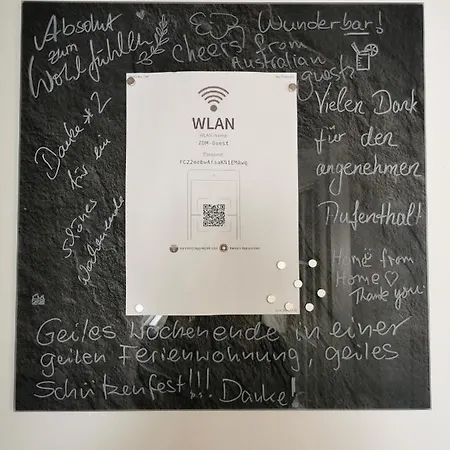 Absolut
zum
Wohlfühlen
Wunderbar!
Cheers from
Australian
guests
Danke *2
für ein
schönes
Wochenende
WLAN
WLAN-Name
ZDM-Guest
Vielen Dank
für den
angenehmen
Aufenthalt
Home from
Home ♡
Thank you
Geiles Wochenende in einer
geilen Ferienwohnung, geiles
Schützenfest!!! Danke!